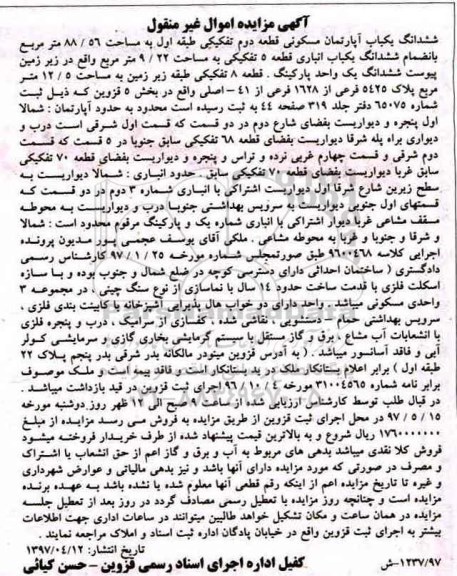 آگهی مزایده اموال غیر منقول
ششدانگ یکباب آپارتمان مسکونی قطعه دوم تفکیکی طبقه اول به مساحت ۵۶ / ۸۸ متر مربع
بانضمام ششدانگ یکباب انباری قطعه ۵ تفکیکی به مساحت ۲۲ / ۹ متر مربع واقع در زیر زمین
پیوست ششدانگ یک واحد پارکینگ . قطعه ۸ تفکیکی طبقه زیر زمین به مساحت ۵ / ۱۲ متر
مربع پلاک ۵۴۲۵ فرعی از ۱۶۲۸ فرعی از ۴۱ - اصلی واقع در بخش ۵ قزوین که ذیل ثبت
شماره ۶۵۰۷۵ دفتر جلد ۳۱۹ صفحه ۴۴ به ثبت رسیده است محدود به حدود آپارتمان : شمالا
اول پنجره و دیواریست بفضای شارع دوم در دو قسمت که قسمت اول شرقی است درب و
دیواری براه پله شرقا دیواریست بفضای قطعه ۶۸ تفکیکی سابق جنوبا در ۵ قسمت که قسمت
دوم شرقی و قسمت چهارم غربی نرده و تراس و پنجره و دیواریست بفضای قطعه ۷۰ تفکیکی
سابق غربا دیواریست بفضای قطعه ۷۰ تفکیکی سابق . حدود انباری : شمالا دیواریست به
سطح زیرین شارع شرقا اول دیواریست اشتراکی با انباری شماره ۳ دوم در دو قسمت که
قسمتهای اول جنوبی دیواریست به سرویس بهداشتی جنوبا درب و دیواریست به محوطه
مسقف مشاعی غربا دیوار اشتراکی با انباری شماره یک و پارکینگ مرقوم محدود است : شمالا
و شرقا و جنوبا و غربا به محوطه مشاعی . ملکی آقای یوسف عجمی پور مدیون پرونده
اجرایی کلاسه ۹۶۰۰۴۶۸ طبق صورتمجلس شماره مورخه ۲۵ / ۱ / ۹۷ کارشناس رسمی
دادگستری ( ساختمان احداثی دارای دسترسی کوچه در ضلع شمال و جنوب بوده و با سازه
اسکلت فلزی با قدمت ساخت حدود ۱۴ سال با نماسازی از نوع سنگ چینی ، در مجموعه ۳
واحدی مسکونی میباشد . واحد دارای دو خواب هال پذیرایی آشپزخانه با کابینت بندی فلزی .
سرویس بهداشتی حمام ، دستشویی ، نقاشی شده ، کفسازی از سرامیک ، درب و پنجره فلزی
با انشعابات آب مشاع ، برق و گاز مستقل با سیستم گرمایشی بخاری گازی و سرمایشی کولر
آبی و فاقد آسانسور میباشد . ( به آدرس قزوین مینودر مالکانه بذر شرقی بذر پنجم پلاک ۲۲
طبقه اول ) برابر اعلام بستانکار ملک در ید بستانکار است و فاقد بیمه است و ملک موصوف
برابر نامه شماره ۳۱۰۰۴۵۶۵ مورخه ۴ / ۱۰ / ۹۶ اجرای ثبت قزوین در قید بازداشت میباشد .
در قبال طلب توسط کارشناس ارزیابی شده از ساعت ۹ صبح الی ۱۲ ظهر روز دوشنبه مورخه
۱۵ / ۵ / ۹۷ در محل اجرای ثبت قزوین از طریق مزایده به فروش می رسد مزایده از مبلغ
۱۷۶۰۰۰۰۰۰۰ ریال شروع و به بالاترین قیمت پیشنهاد شده از طرف خریدار فروخته میشود
فروش کلا نقدی میباشد بدهی های مربوط به آب و برق و گاز اعم از حق انشعاب یا اشتراک
و مصرف در صورتی که مورد مزایده دارای آنها باشد و نیز بدهی مالیاتی و عوارض شهرداری
و غیره تا تاریخ مزایده اعم از اینکه رقم قطعی آنها معلوم شده یا نشده باشد به عهده برنده
مزایده است و چنانچه روز مزایده با تعطیل رسمی مصادف گردد در روز بعد از تعطیل جلسه
مزایده در همان ساعت و مکان تشکیل خواهد طالبین میتوانند در ساعات اداری جهت اطلاعات
بیشتر به اجرای ثبت قزوین واقع در خیابان پادگان اداره ثبت اسناد و املاک مراجعه نمایند .
تاریخ انتشار: ۱۳۹۷/۰۴/۱۲
کفیل اداره اجرای اسناد رسمی قزوین - حسن کیائی
۱۲۳۷/۹۷-ش